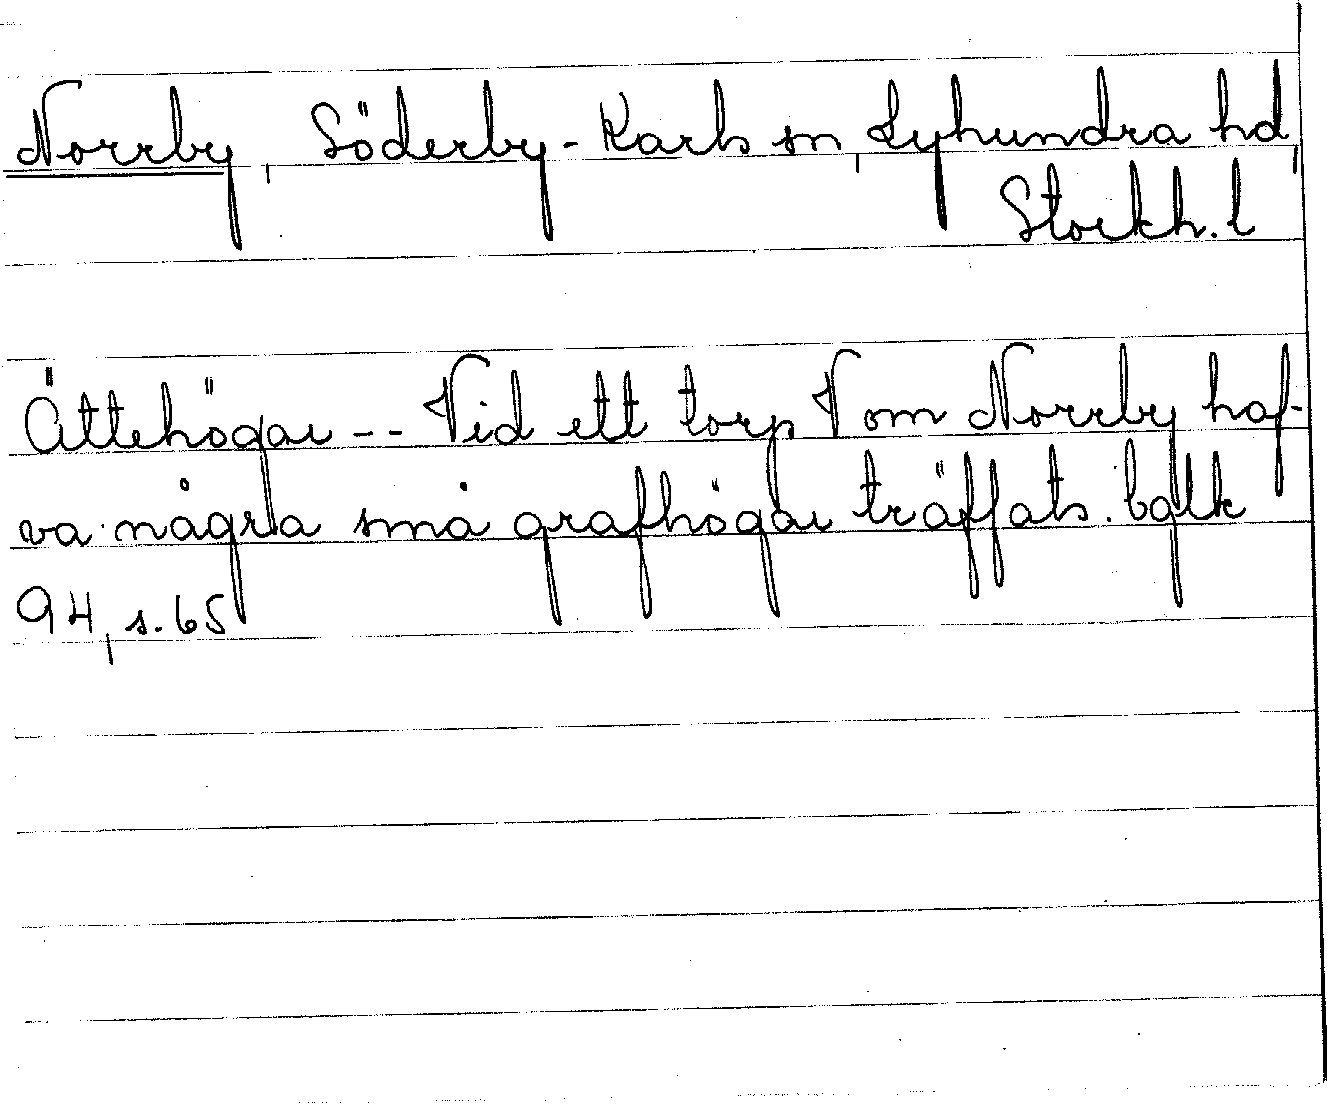 Norrby, Söderby-Karls sn, Lyhundra hd,
Stockh. l
Ättehögar -- Vid ett torp V om Norrby haf-
va några små grafhögar träffats. balk
94, s. 65